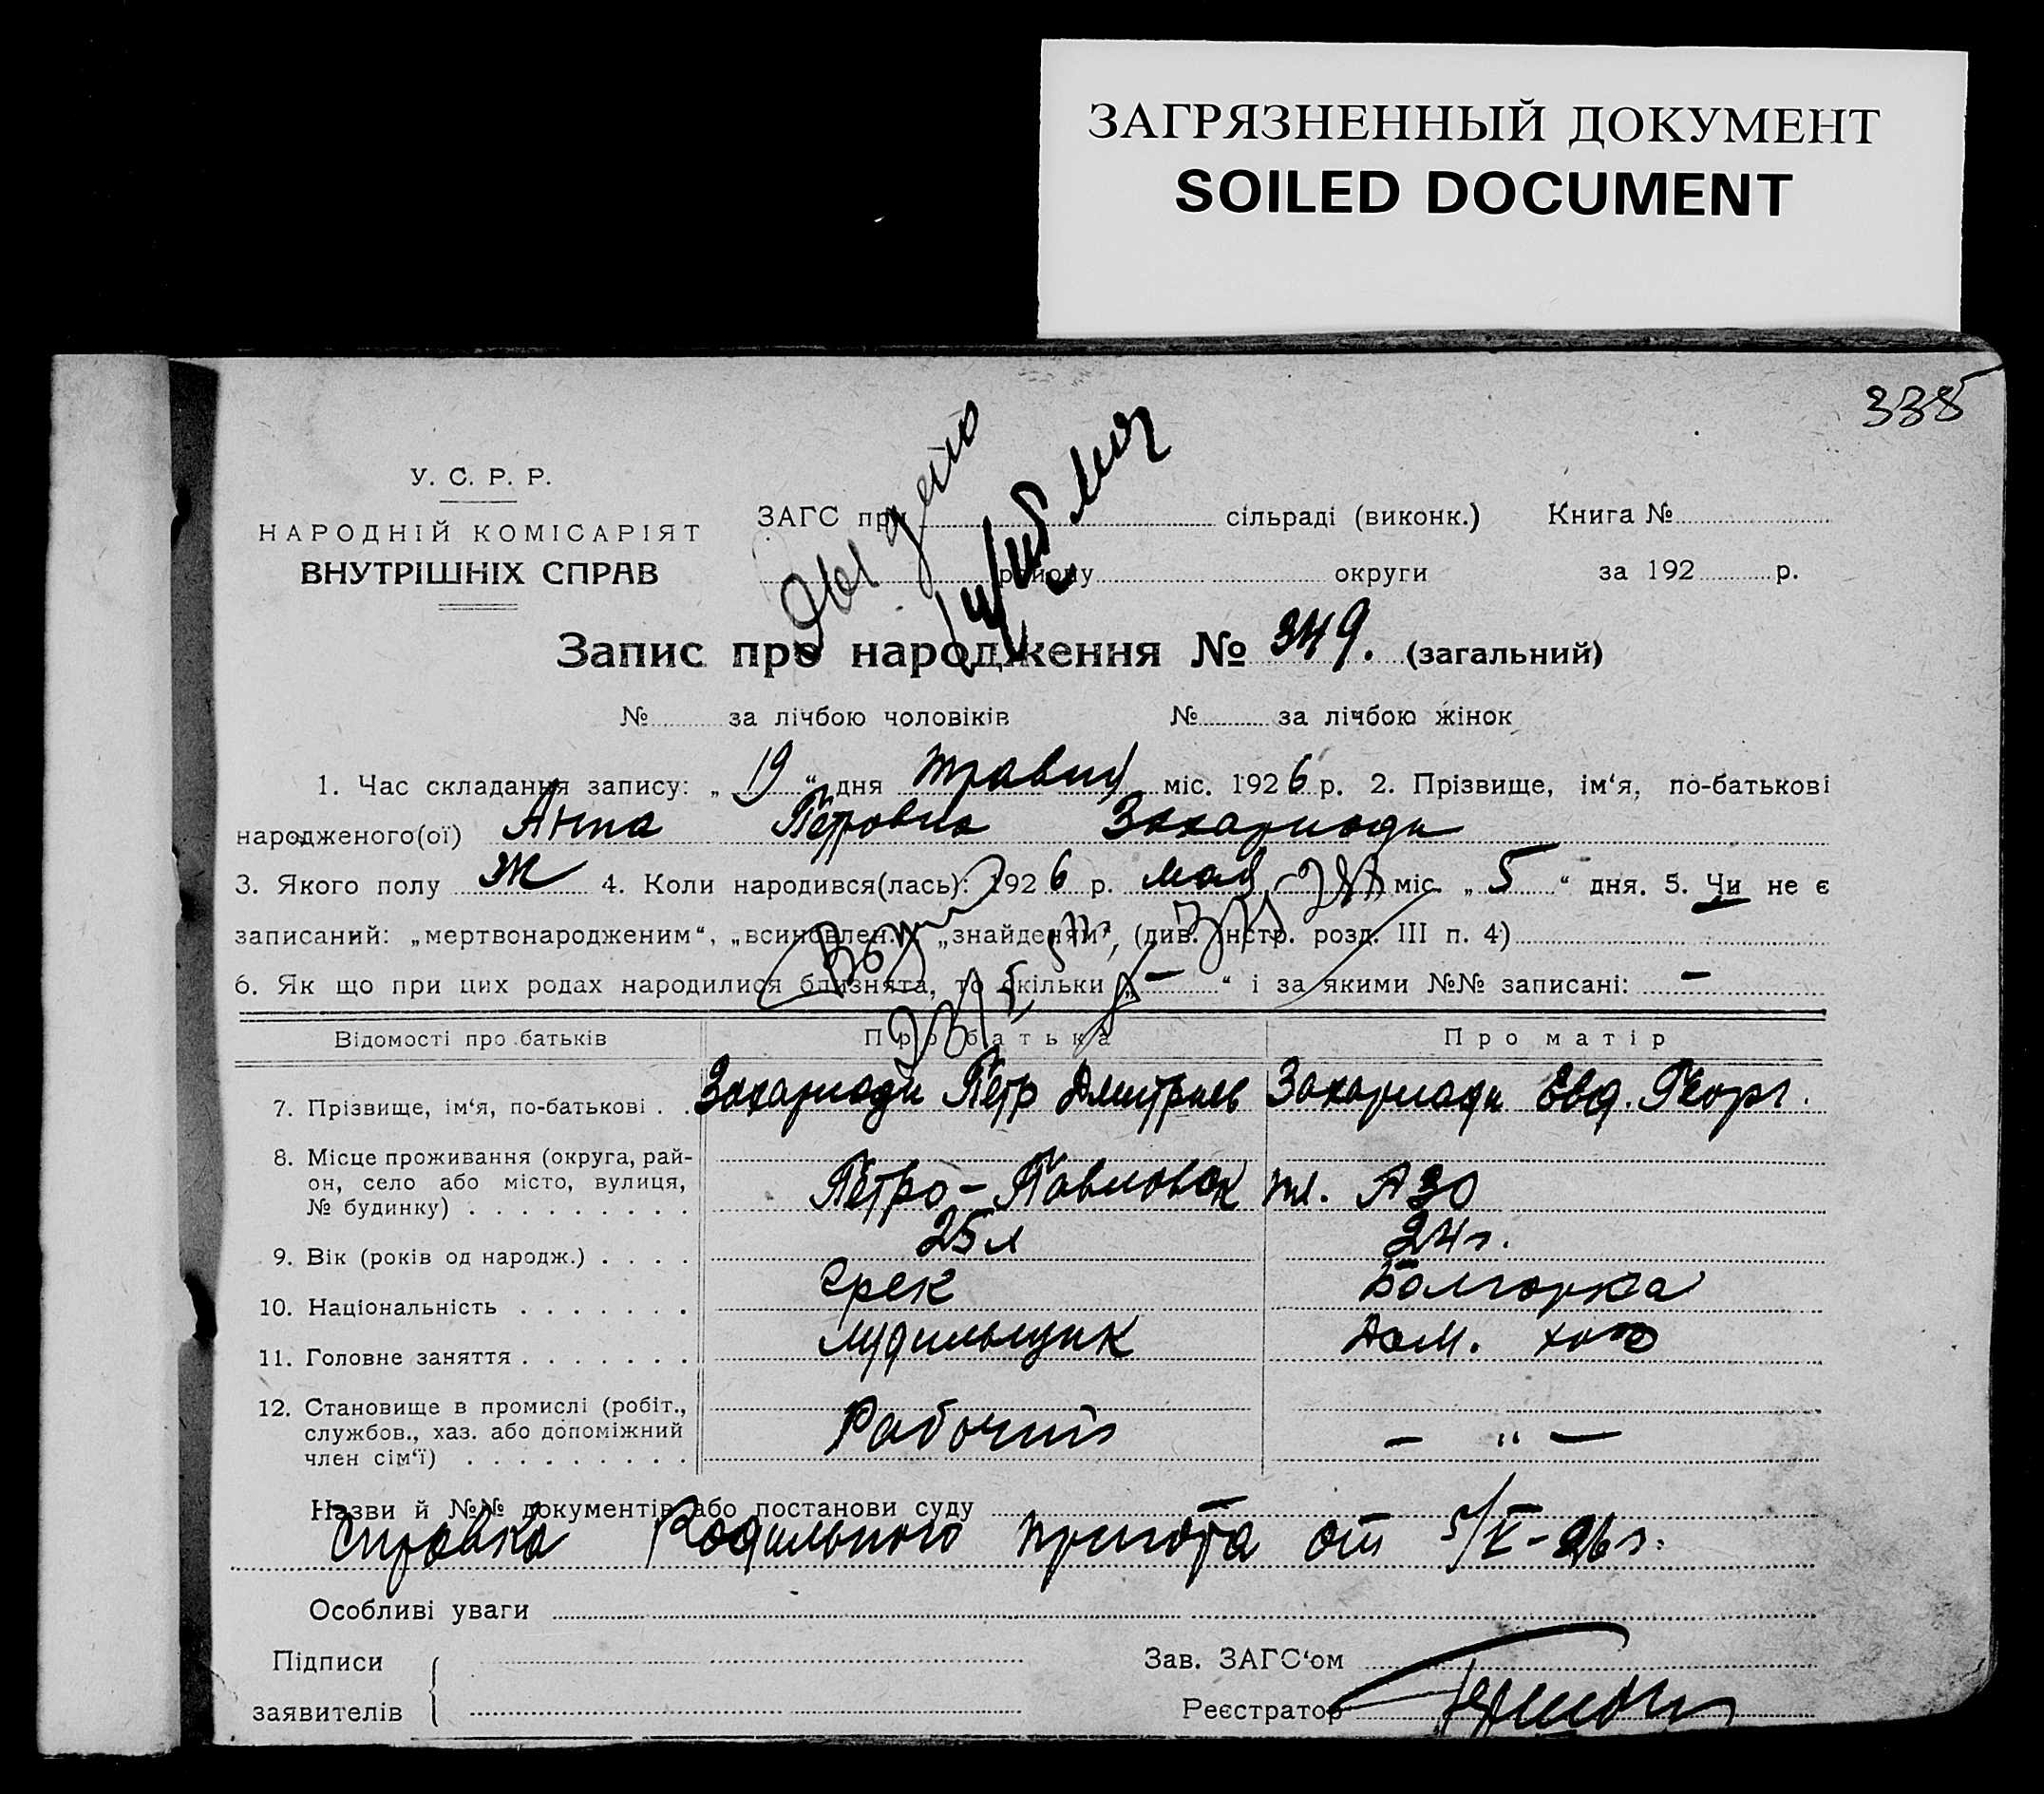 ЗАГРЯЗНЕННЫЙ ДОКУМЕНТ
SOILED DOCUMENT
335
У. С. Р. Р.
НАРОДНІЙ КОМІСАРІЯТ
ВНУТРІШНІХ СПРАВ
ЗАГС при сільраді (виконк.) Книга №
району округи за 192 р.
Запис про народження № 349. (загальний)
№ за лічбою чоловіків № за лічбою жінок
1. Час складання запису: „ 19 “ дня травня міс. 1926 р. 2. Прізвище, ім‘я, по-батькові
народженого(ої) Анна Петровна Захариади
3. Якого полу Ж 4. Коли народився(лась): 1926 р. мая міс. „ 5 “ дня. 5. Чи не є
записаний: „мертвонародженим“, „всиновлен.“, „знайденим“, (див. інстр. розд. III п. 4)
6. Як що при цих родах народилися близнята, то скільки „ — “ і за якими №№ записані: —
Відомості про батьків Про батька Про матір
7. Прізвище, ім‘я, по-батькові . . Захариади Петр Дмитриев Захариади Евд. Георг.
8. Місце проживання (округа, рай-
он, село або місто, вулиця,
№ будинку) . . . . . . . . . Петро-Павловск пл. А 30
9. Вік (років од народж.) . . . . 25 л 24 г.
10. Національність . . . . . . . Грек Болгарка
11. Головне заняття . . . . . . . Лудильщик Дом. хоз
12. Становище в промислі (робіт.,
службов., хаз. або допоміжний
член сім‘ї) . . . . . . . . . Рабочий — „ —
Назви й №№ документів або постанови суду
Справка Родильного приюта от 5/V-26 г.
Особливі уваги
Підписи Зав. ЗАГС‘ом
заявителів Реєстратор